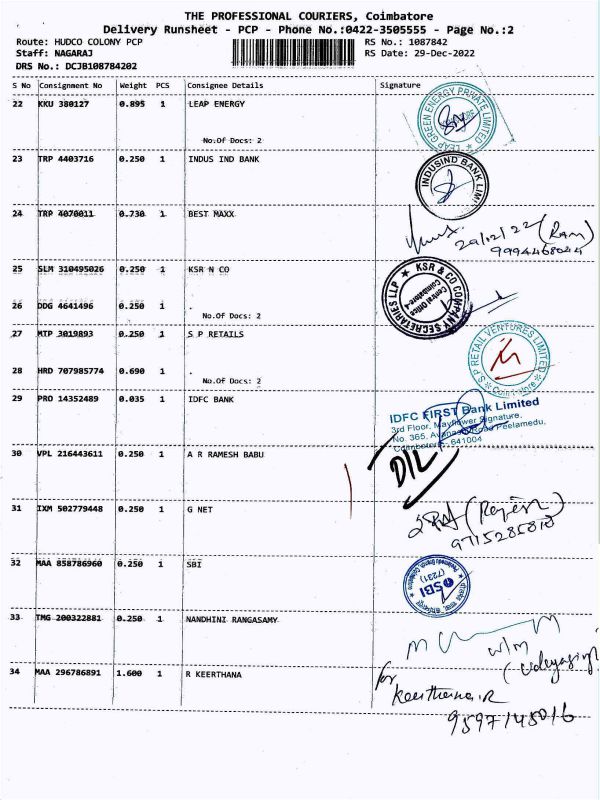 THE PROFESSIONAL COURIERS, Coimbatore
Delivery Runsheet - PCP - Phone No.:0422-3505555 - Page No.:2
Route: HUDCO COLONY PCP
RS No.: 1087842
Staff: NAGARAJ
RS Date: 29-Dec-2022
DRS No.: DCJB108784202
S No Consignment No Weight PCS Consignee Details Signature
22 KKU 380127 0.895 1 LEAP ENERGY
LEAP GREEN ENERGY PRIVATE LIMITED
No.Of Docs: 2
23 TRP 4403716 0.250 1 INDUS IND BANK
INDUSIND BANK LIMI
24 TRP 4070011 0.730 1 BEST MAXX
29/12/22 (Ram)
9994468044
25 SLM 310495026 0.250 1 KSR N CO
KSR & CO COMPANY SECRETARIES LLP
Central Office
Coimbatore-4
26 DDG 4641496 0.250 1 .
No.Of Docs: 2
27 MTP 3019893 0.250 1 S P RETAILS
S P RETAIL VENTURES LIMITED
Coimbatore
28 HRD 707985774 0.690 1 .
No.Of Docs: 2
29 PRO 14352489 0.035 1 IDFC BANK
IDFC FIRST Bank Limited
3rd Floor, Mayflower Signature,
No. 365, Avanashi Road Peelamedu,
Coimbatore - 641004
30 VPL 216443611 0.250 1 A R RAMESH BABU
D/L
31 IXM 502779448 0.250 1 G NET
9715285818
32 MAA 858786960 0.250 1 SBI
SBI
(7231)
33 TMG 200322881 0.250 1 NANDHINI RANGASAMY
34 MAA 296786891 1.600 1 R KEERTHANA
for
Keerthana.R
9597145016